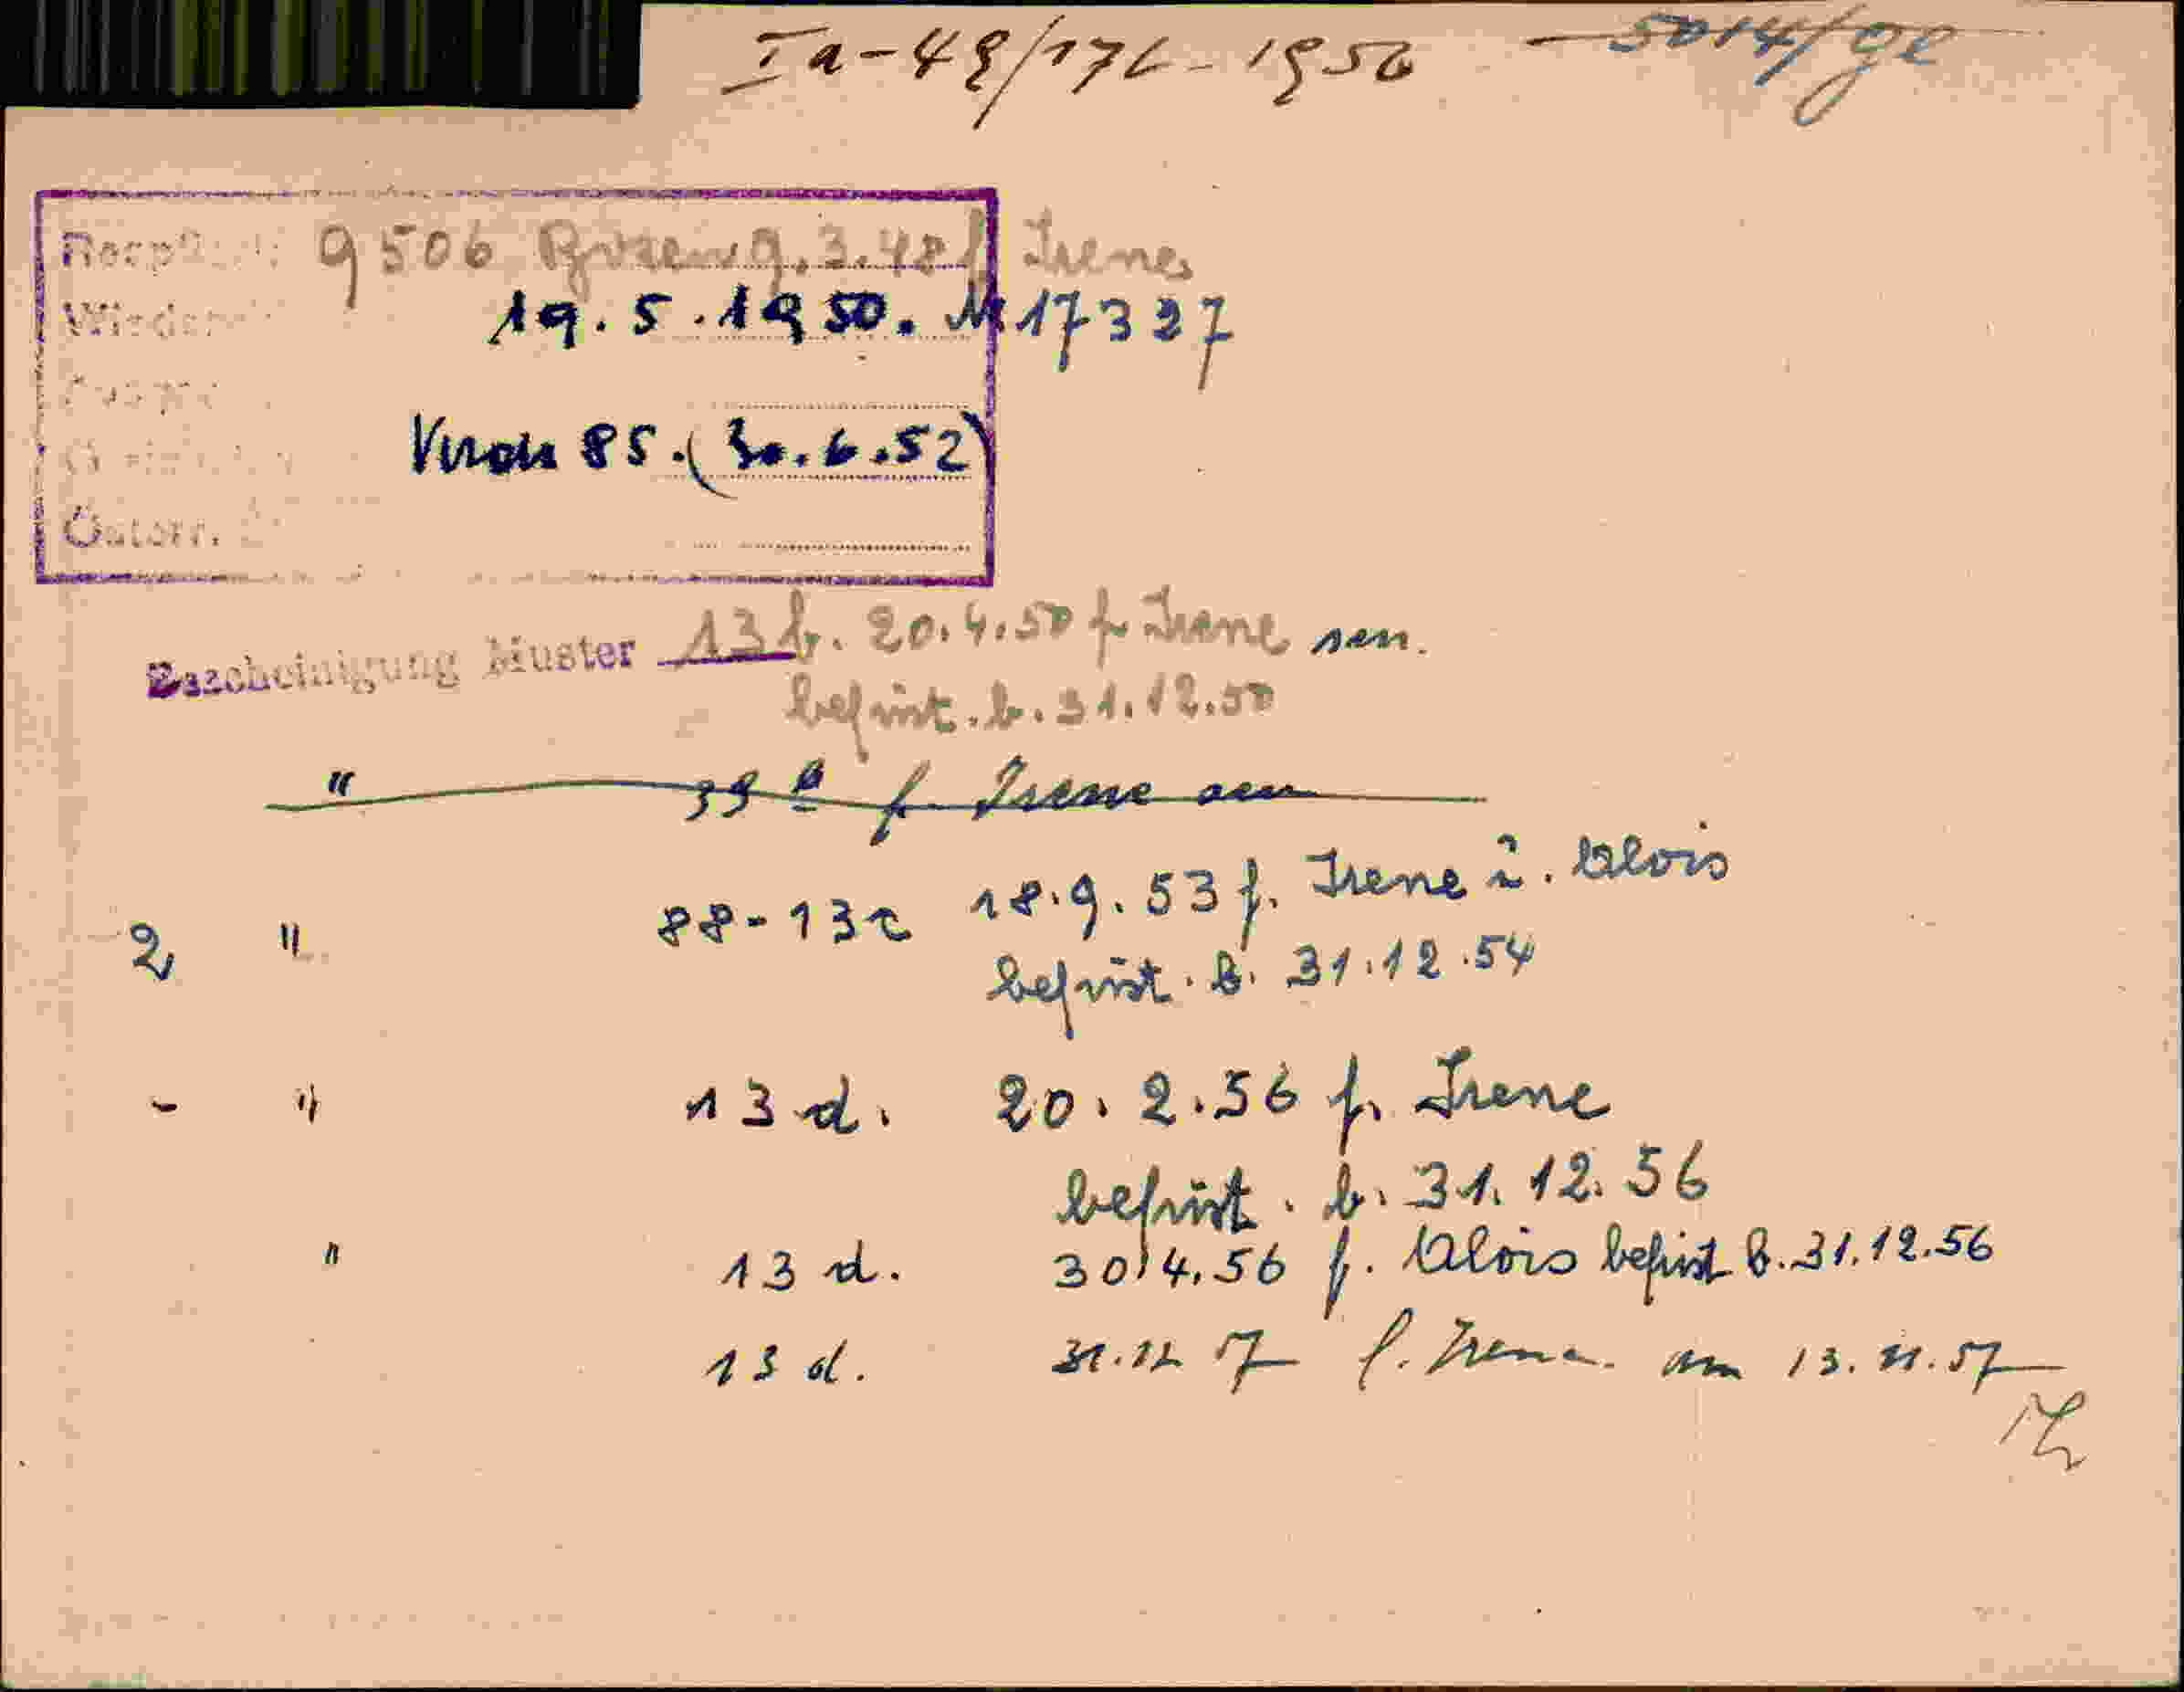 Ia-49/176-1956 - 5014/
9506 9.3.48 f Irenes
19.5.1950. M 17327
85. (30.6.52)
Österr.
Bescheinigung Muster 13 b. 20.4.50 f. Irene sen.
befrist. b. 31.12.50
" 39 a f. Irene sen
2 " 88-13c 18.9.53 f. Irene ü. Alois
befrist. b. 31.12.54
- " 13 d. 20.2.56 f. Irene
befrist. b. 31.12.56
" 13 d. 30.4.56 f. Alois befrist b. 31.12.56
13 d. 31.12 57 f. Irene am 13.11.57